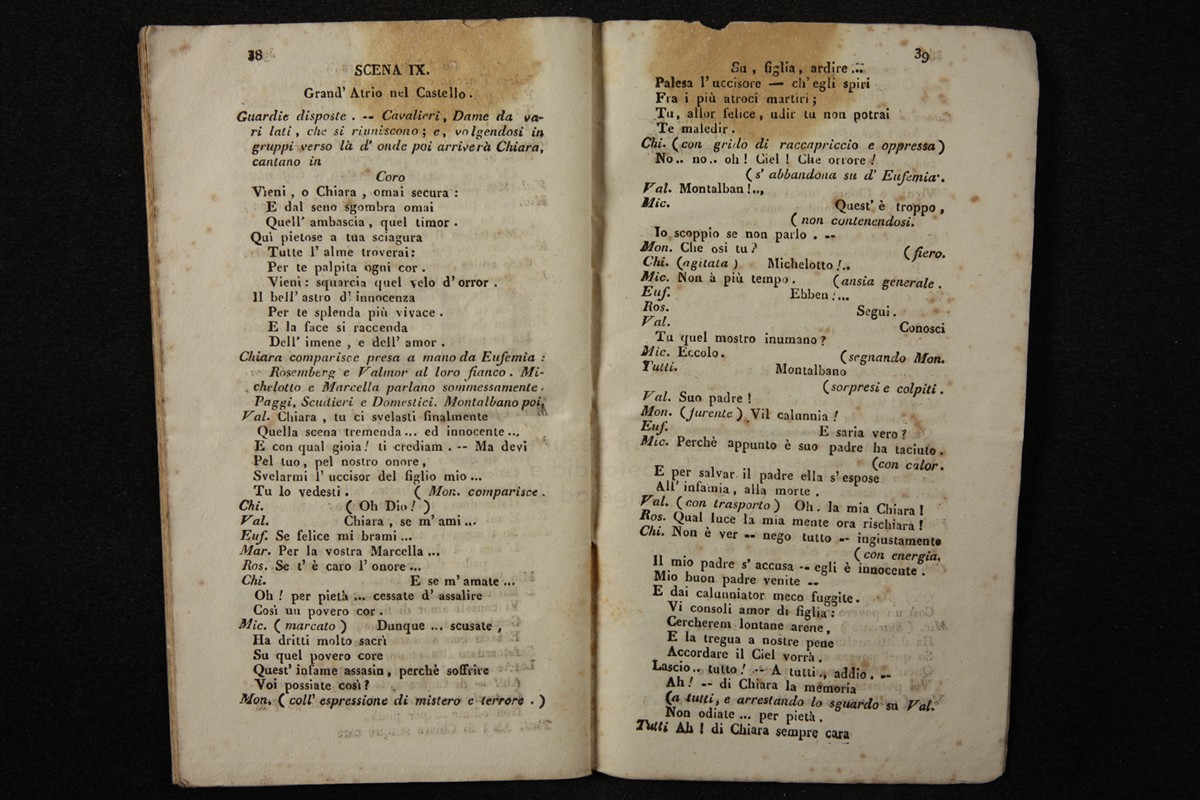 38
SCENA IX.
Grand' Atrio nel Castello.
Guardie disposte. -- Cavalieri, Dame da va-
ri lati, che si riuniscono; e, volgendosi in
gruppi verso là d' onde poi arriverà Chiara,
cantano in
Coro
Vieni, o Chiara, omai secura:
E dal seno sgombra omai
Quell' ambascia, quel timor.
Quì pietose a tua sciagura
Tutte l' alme troverai:
Per te palpita ogni cor.
Vieni: squarcia quel velo d' orror.
Il bell' astro d' innocenza
Per te splenda più vivace.
E la face si raccenda
Dell' imene, e dell' amor.
Chiara comparisce presa a mano da Eufemia:
Rosemberg e Valmor al loro fianco. Mi-
chelotto e Marcella parlano sommessamente.
Paggi, Scudieri e Domestici. Montalbano poi,
Val. Chiara, tu ci svelasti finalmente
Quella scena tremenda... ed innocente..,
E con qual gioia! ti crediam. -- Ma devi
Pel tuo, pel nostro onore,
Svelarmi l' uccisor del figlio mio...
Tu lo vedesti. (Mon. comparisce.
Chi. (Oh Dio!)
Val. Chiara, se m' ami...
Euf. Se felice mi brami...
Mar. Per la vostra Marcella...
Ros. Se t' è caro l' onore...
Chi. E se m' amate...
Oh! per pietà... cessate d' assalire
Così un povero cor.
Mic. (marcato) Dunque... scusate,
Ha dritti molto sacrì
Su quel povero core
Quest' infame assasin, perchè soffrire
Voi possiate così?
Mon. (coll' espressione di mistero e terrore.)
39
Su, figlia, ardire...
Palesa l' uccisore — ch' egli spiri
Fra i più atroci martirj;
Tu, allor felice, udir tu non potrai
Te maledir.
Chi. (con grido di raccapriccio e oppressa)
No.. no.. oh! Ciel! Che orrore!
(s' abbandona su d' Eufemia.
Val. Montalban!..,
Mic. Quest' è troppo,
(non contenendosi.
Io scoppio se non parlo. --
Mon. Che osi tu?
(fiero.
Chi. (agitata) Michelotto!..
Mic. Non à più tempo. (ansia generale.
Euf. Ebben!...
Ros. Segui.
Val. Conosci
Tu quel mostro inumano?
Mic. Eccolo. (segnando Mon.
Tutti. Montalbano
(sorpresi e colpiti.
Val. Suo padre!
Mon. (furente) Vil calunnia!
Euf. E saria vero?
Mic. Perchè appunto è suo padre ha taciuto.
(con calor.
E per salvar il padre ella s' espose
All' infamia, alla morte.
Val. (con trasporto) Oh. la mia Chiara!
Ros. Qual luce la mia mente ora rischiara!
Chi. Non è ver -- nego tutto -- ingiustamente
(con energia.
Il mio padre s' accusa -- egli è innocente.
Mio buon padre venite --
E dai calunniator meco fuggite.
Vi consoli amor di figlia:
Cercherem lontane arene,
E la tregua a nostre pene
Accordare il Ciel vorrà.
Lascio.. tutto! -- A tutti., addio. --
Ah! -- di Chiara la memoria
(a tutti, e arrestando lo sguardo su Val.
Non odiate... per pietà.
Tutti Ah! di Chiara sempre cara